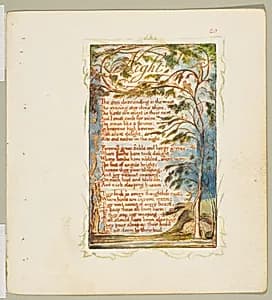 Night
The sun descending in the west
The evening star does shine.
The birds are silent in their nest
And I must seek for mine,
The moon like a flower,
In heavens high bower;
With silent delight,
Sits and smiles on the night.
Farewell green fields and happy groves,
Where flocks have took delight;
Where lambs have nibbled, silent moves
The feet of angels bright;
Unseen they pour blessing,
And joy without ceasing,
On each bud and blossom,
And each sleeping bosom.
They look in every thoughtless nest,
Where birds are coverd warm;
They visit caves of every beast,
To keep them all from harm;
If they see any weeping,
That should have been sleeping
They pour sleep on their head
And sit down by their bed.